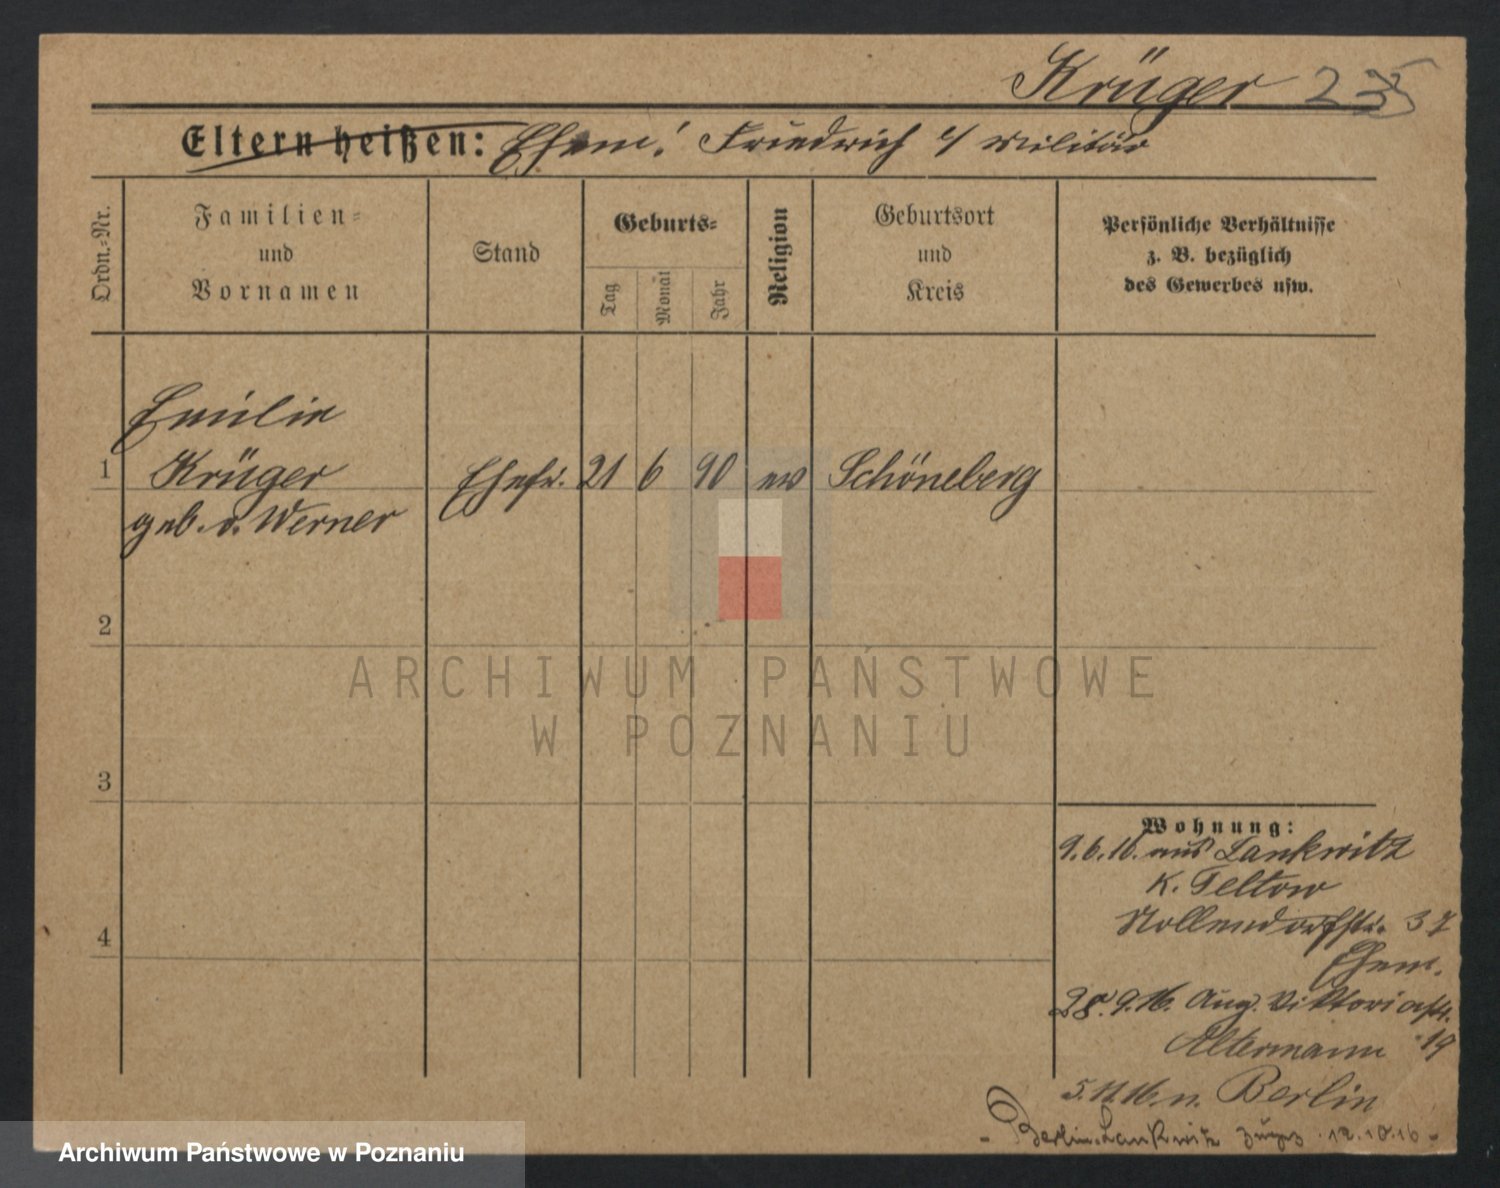 Krüger 235
Eltern heißen: Ehem. Friedrich z/ Militär
Ordn.-Nr.
Familien-
und
Vornamen
Stand
Geburts-
Tag
Monat
Jahr
Religion
Geburtsort
und
Kreis
Persönliche Verhältnisse
z. B. bezüglich
des Gewerbes usw.
Emilie
1 Krüger Ehefr. 21 6 90 ev Schöneberg
geb. v. Werner
2
3
4
ARCHIWUM PAŃSTWOWE
W POZNANIU
Wohnung:
9.6.16. aus Lankwitz
K. Teltow
Nollendorfstr. 37
Ehem.
28.9.16. Aug. Viktoriastr.
Altermann 19
5.11.16. n. Berlin
Berlin-Lankwitz 12.10.16
Archiwum Państwowe w Poznaniu